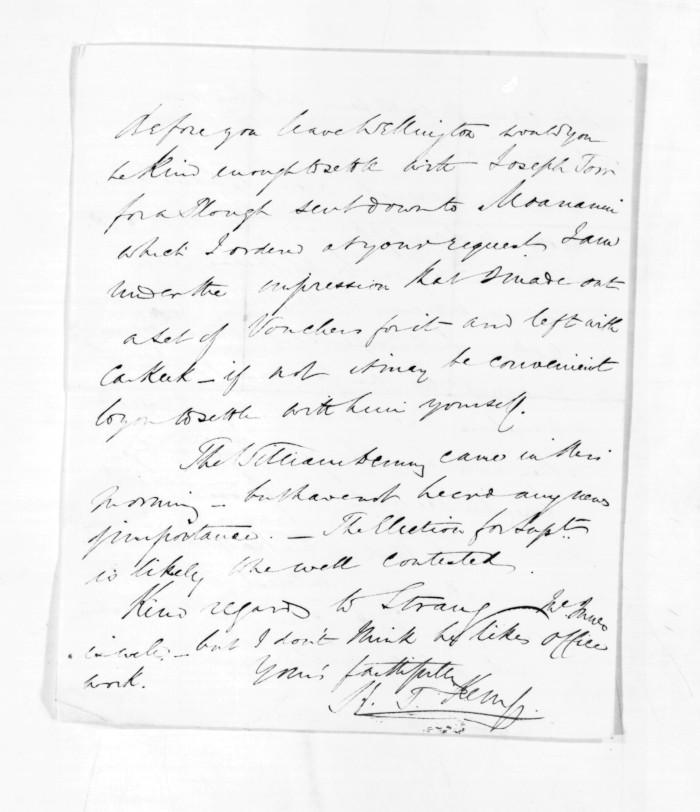 Before you leave Wellington would you
be kind enough to settle with Joseph Torr
for a Plough sent down to Moananui
which I ordered at your request I am
under the impression that I made out
a set of Vouchers for it and left with
Carkeek — if not it may be convenient
to you to settle with him yourself.
The William Denny came in this
morning — but have not heard any news
of importance. — The Election for Supt.
is likely to be well contested.
Kind regards to Strang McInnes
is well — but I don't think he likes office
work.
Yours faithfully
H. T. Kemp